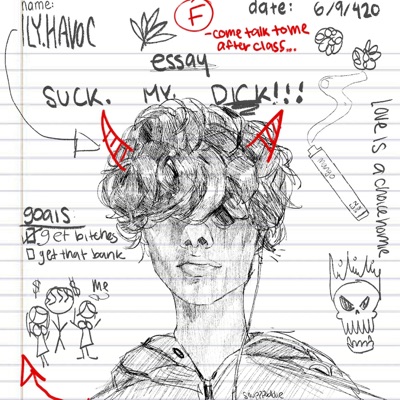 name:
ILY.HAVOC
F
-come talk to me
after class...
date: 6/9/420
essay
SUCK. MY. DICK!!!
love is a chore homie
goals
get bitches
get that bank
$ $
Me
mango